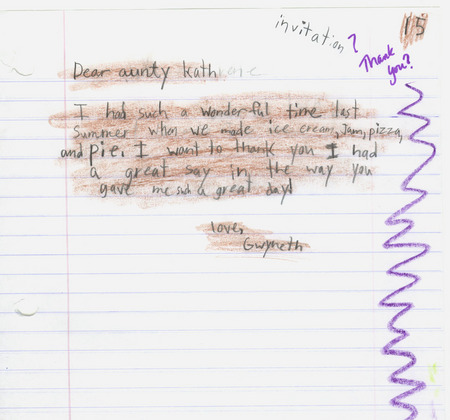 invitation?
15
Thank
you?
Dear aunty kathlane
I had such a wonderful time last
summer when we made ice cream, Jam, pizza,
and pie. I want to thank you I had
a great say in the way you
gave me such a great day!
love,
Gwyneth